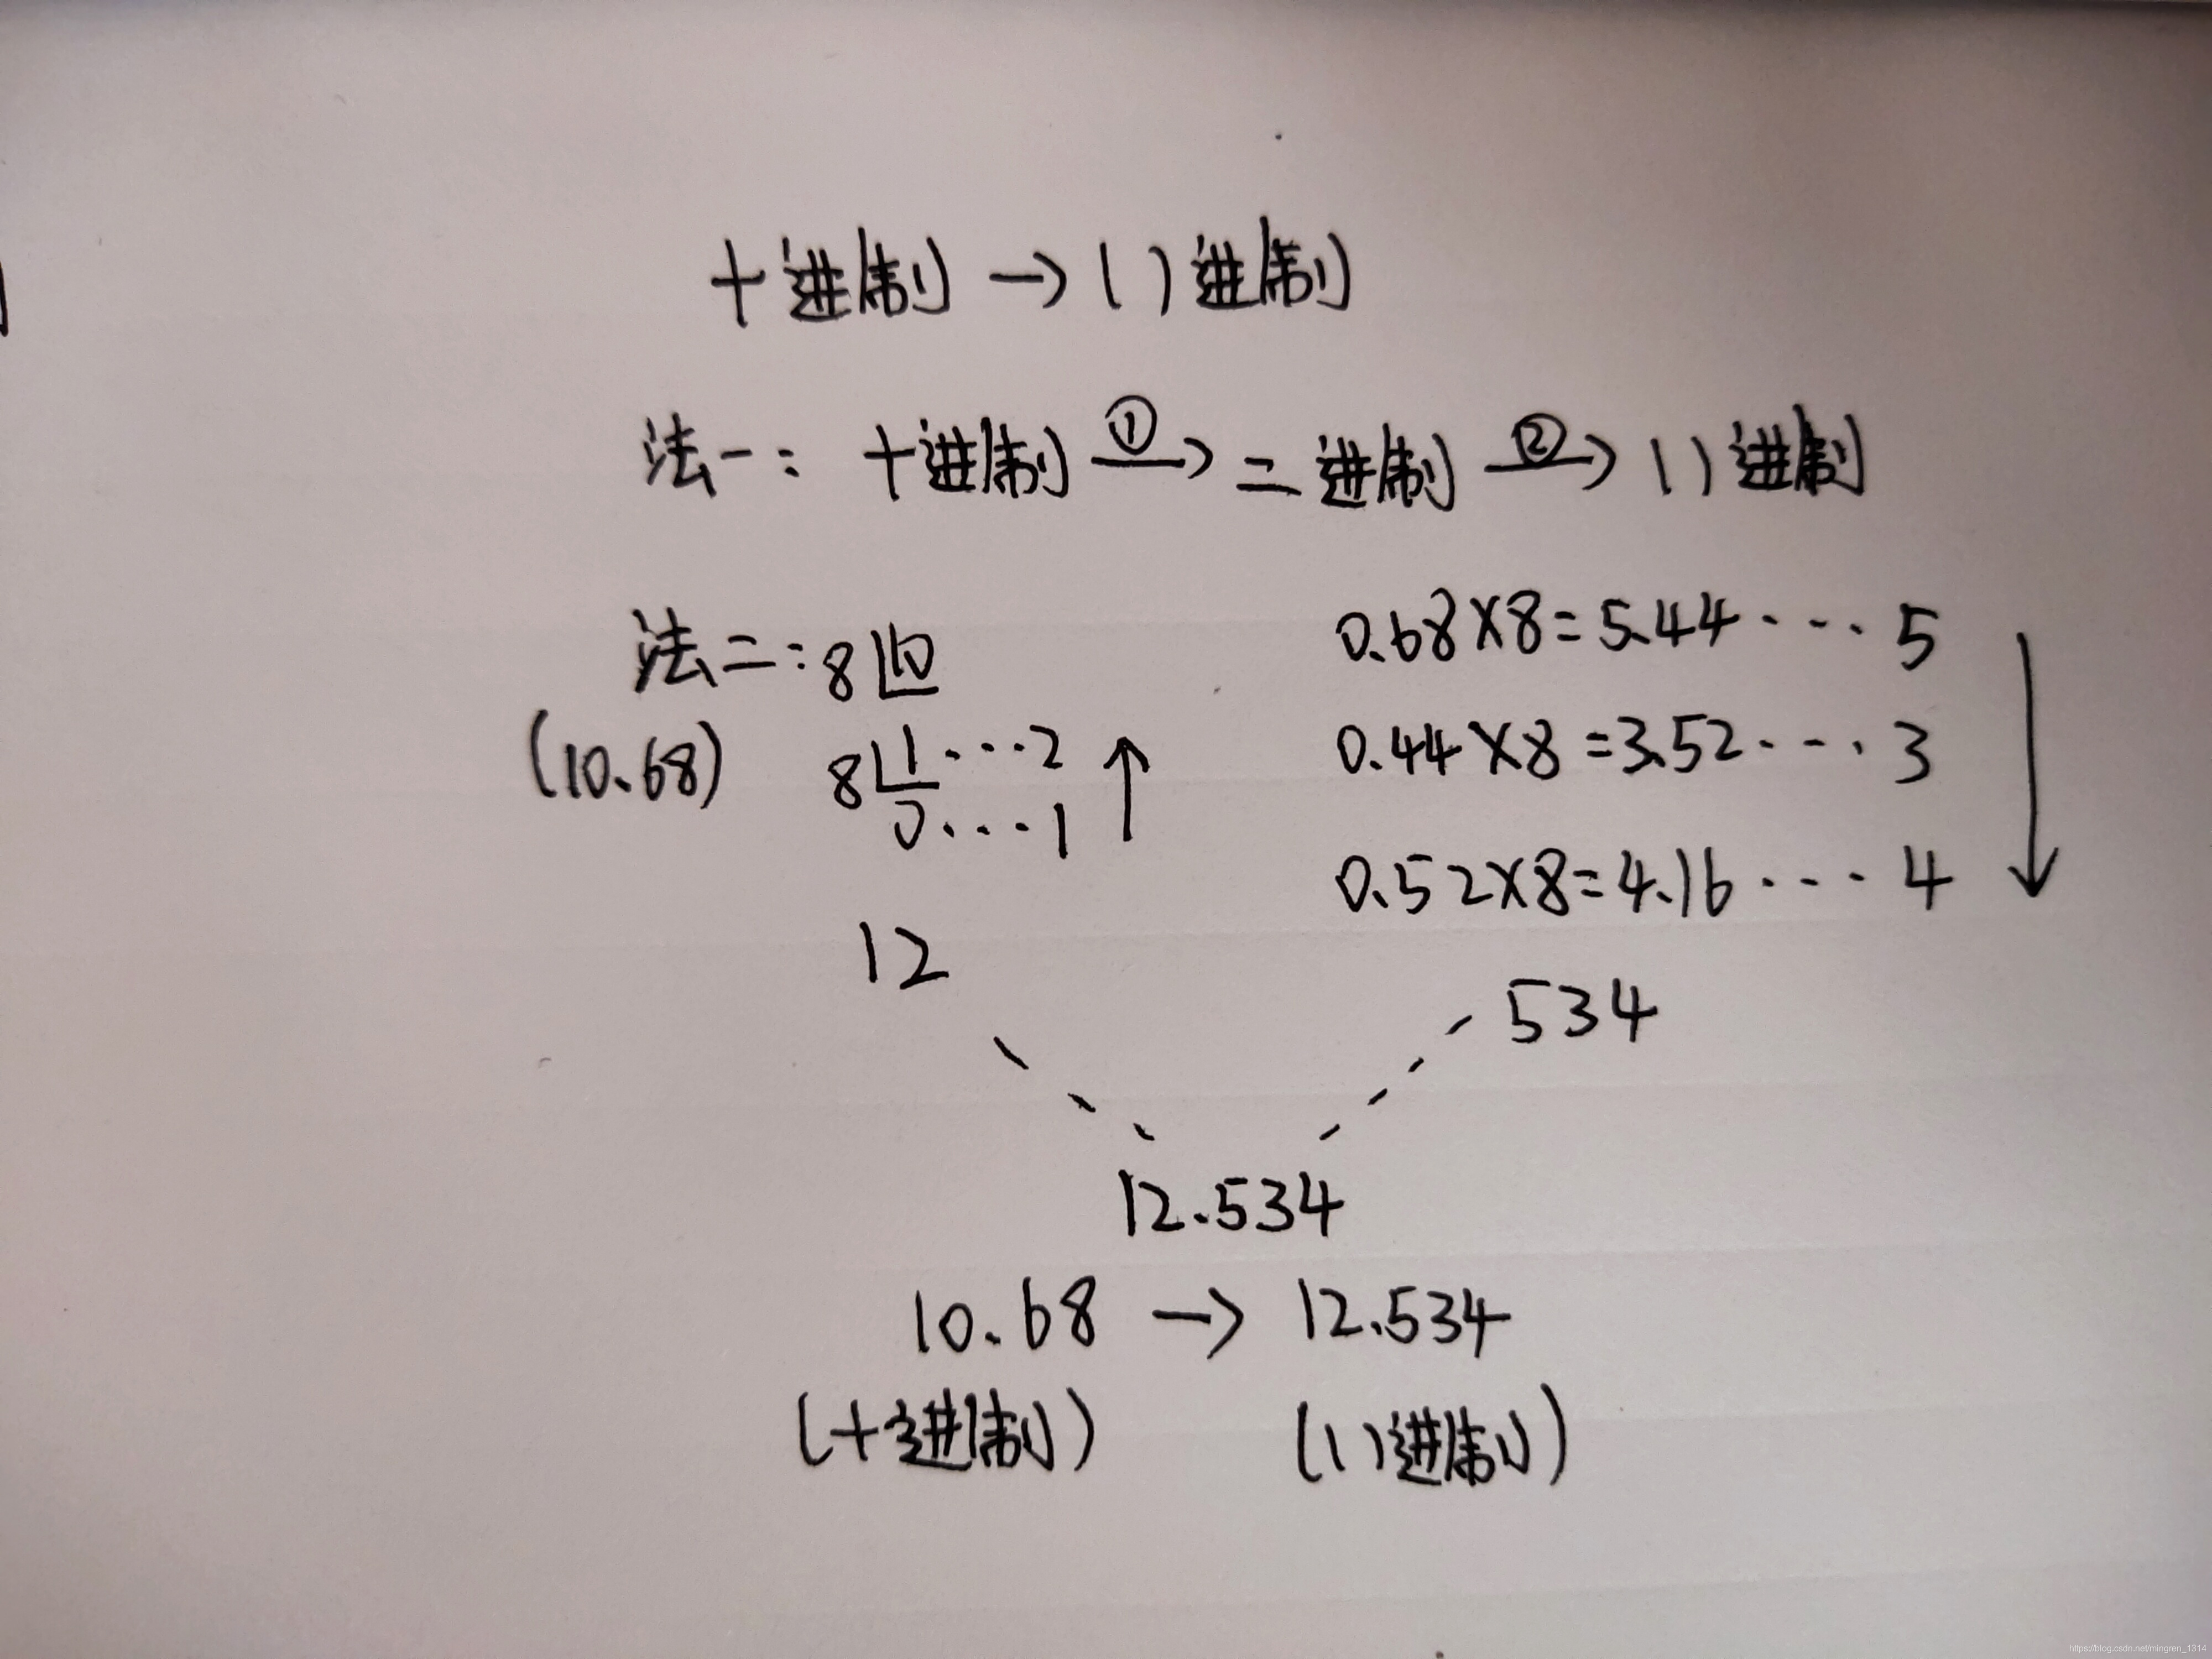 十进制 → 八进制
法一: 十进制 ①→ 二进制 ②→ 八进制
法二: 8 10
(10.68) 8 1 ··· 2 ↑
0 ··· 1
12
0.68×8=5.44 ··· 5
0.44×8=3.52 ··· 3
0.52×8=4.16 ··· 4
↓
534
12.534
10.68 → 12.534
(十进制) (八进制)
https://blog.csdn.net/mingren_1314